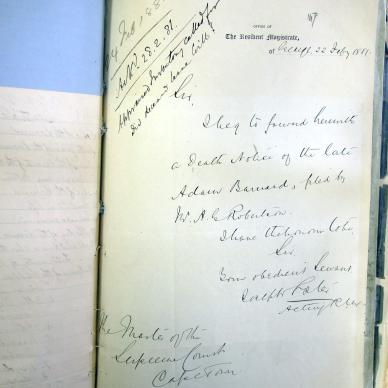 Feb 188
Ack? 28.2.81.
Appraised Inventory called for
Did deceased leave Will?
OFFICE OF
The Resident Magistrate,
of George, 22 Feby 1881.
Sir,
I beg to forward herewith
a Death Notice of the late
Adam Barnard, filed by
Mr. A. G. Robertson.
I have the honour to be,
Sir
Your obedient Servant
Joseph
Acting R. M.
The Master of the
Supreme Court
Cape Town